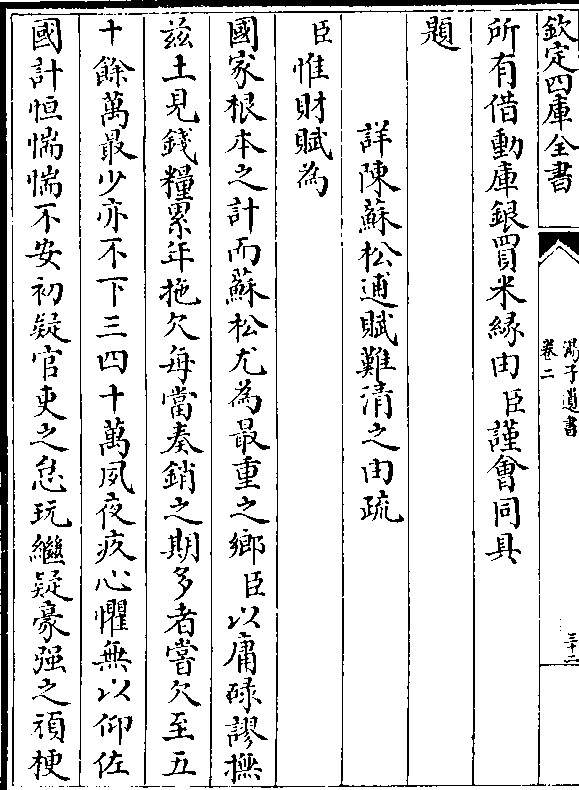 欽定四庫全書
湯子遺書
卷二
三十二
所有借動庫銀買米緣由臣謹會同具
題
詳陳蘇松逋賦難清之由疏
臣惟財賦為
國家根本之計而蘇松尤為最重之鄉臣以庸碌謬撫
兹土見錢糧累年拖欠每當奏銷之期多者嘗欠至五
十餘萬最少亦不下三四十萬夙夜疚心懼無以仰佐
國計恒惴惴不安初疑官吏之怠玩繼疑豪强之頑梗